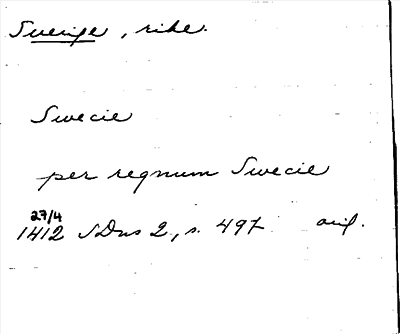 Sverige, rike.
Swecie
per regnum Swecie
27/4
1412 SDns 2, s. 497 avs.